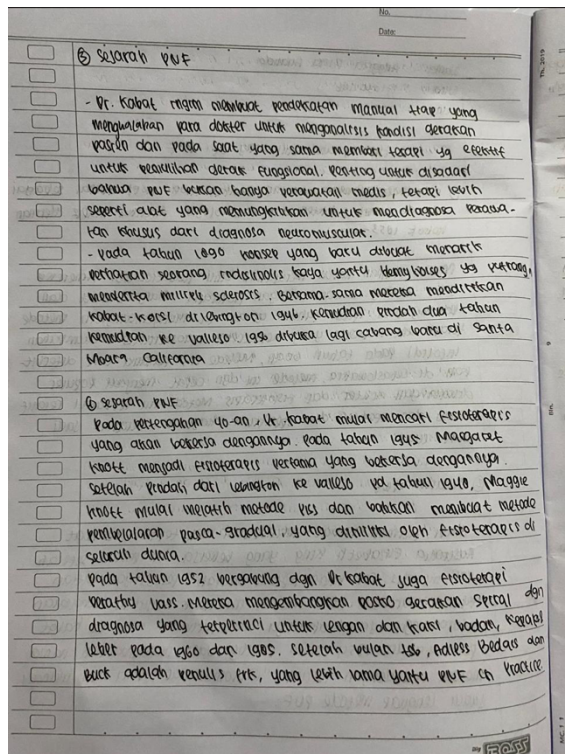 No.
Date:
⑤ Sejarah PNF
- Dr. Kabat ingin membuat pendekatan manual tiap yang
mengwalaban para dokter untuk manganalisis kandisi gerakan
pasien dan pada saat yang sama memberi terapi yg efektif
untuk pemulihan derak fungsional. Penting untuk disadari
bahwa PNF bukan hanya perawatan medis, tetapi lebih
seperti alat yang memungkinkan untuk mendiagnosa perawa-
tan khusus dari diagnosa neuromuscular.
- Pada tahun 1090 konsep yang baru dibuat menarik
perhatian seorang indistnolis kaya yaitu Henry koises yg
menderita millreyl sclerosis. Bersama-sama mereka mendirikan
Kabat-Korsi di lebington 1946. Kemudian pindah dua tahun
kemudian ke vallejo. 1950 dibuka lagi cabang baru di Santa
Moara California
⑥ Sejarah PNF
Pada pertengahan 40-an, Dr. Kabat mulai mencari fisioterapis
yang akan bekerja dengannya. Pada tahun 1945 Margaret
Knott menjadi fisioterapis pertama yang bekerja dengannya.
Setelah pindah dari lebington ke vallejo pd tahun 1940, Maggie
Knott mulai melatih metode PISS dan bahkan membuat metode
pembelalaran pasca-gradual, yang dihiliti oleh fisioterapis di
seluruh dunia.
Pada tahun 1952 bergabung dgn Dr Kabat juga fisioterapi
berathy vass. Mereka mengembangkan posko gerakan Spiral dgn
diagnosa yang terperinci untuk lengan dan kaki, badan, kepala,
leher pada 1960 dan 1985. Setelah bulan tsb, Adless Bedars dan
Buck adalah penulis frk, yang lebih lama yaitu PNF in Practice
by BOSS